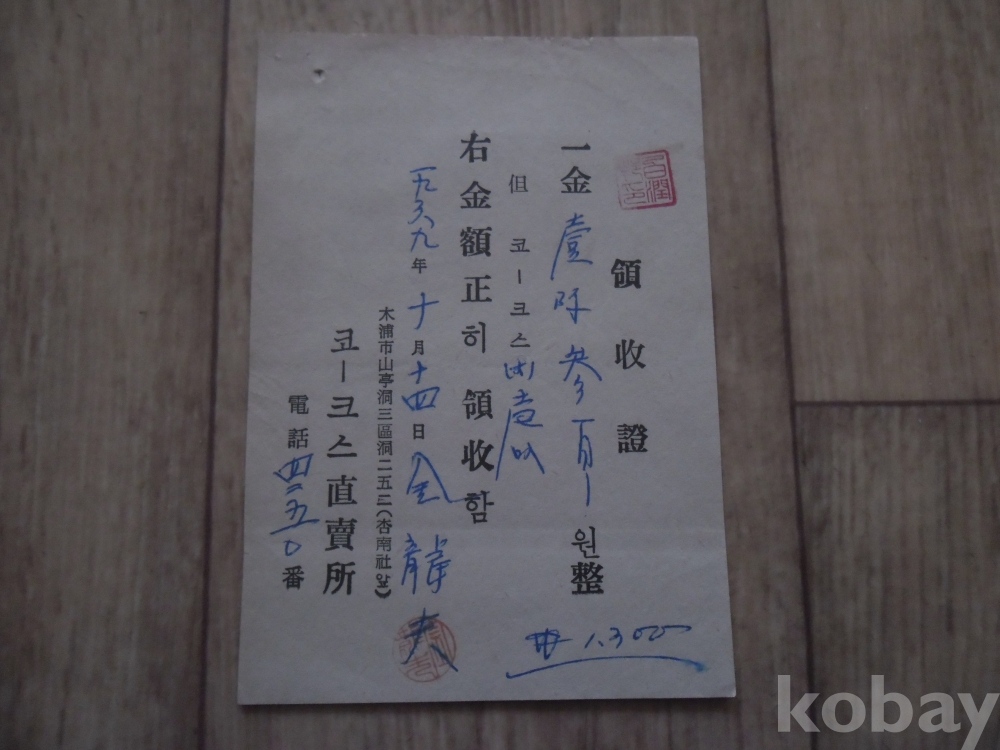 領收證
一金 壹阡參百 원整
但 코ー크스
右金額正히 領收함
一九六九年 十月 十四日 金
木浦市山亭洞三區洞二五三(杏南社앞)
코ー크스直賣所
電話 四二五〇番
# 1.300
kobay